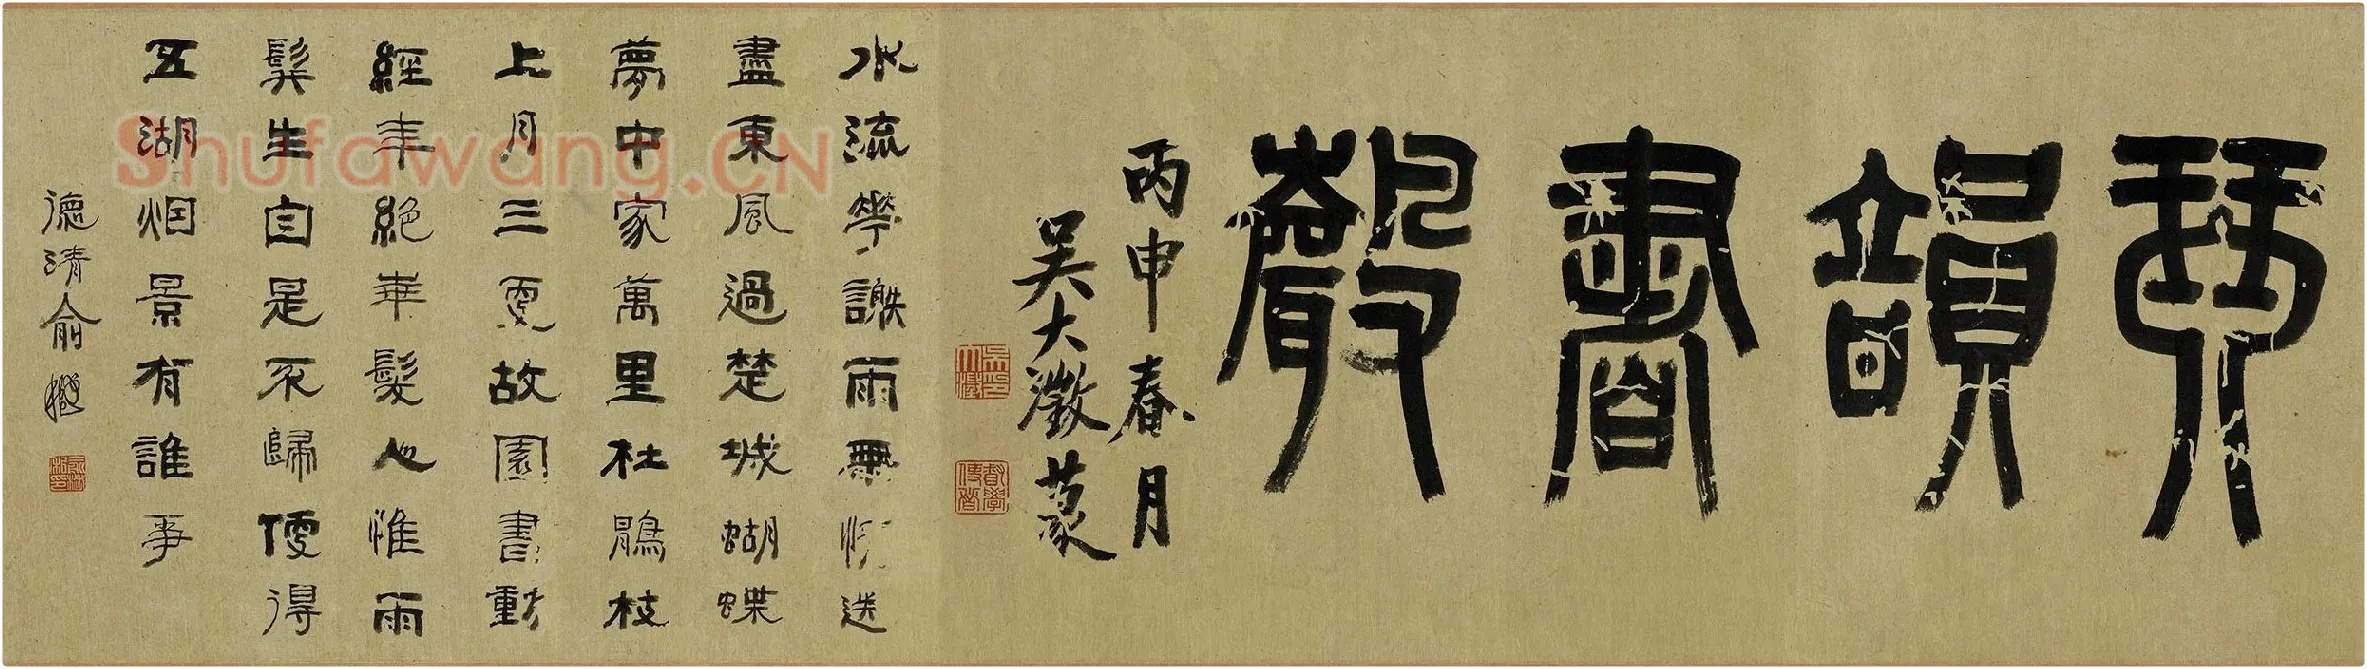 琴韻書聲
丙申春月
吳大澂篆
吳印大澂
督學使者
水流華謝雨無情送
盡東風過楚城蝴蝶
夢中家萬里杜鵑枝
上月三更故園書動
經年絕華髮心惟雨
鬢生自是不歸便得
五湖烟景有誰爭
德清俞樾
Shufawang.CN